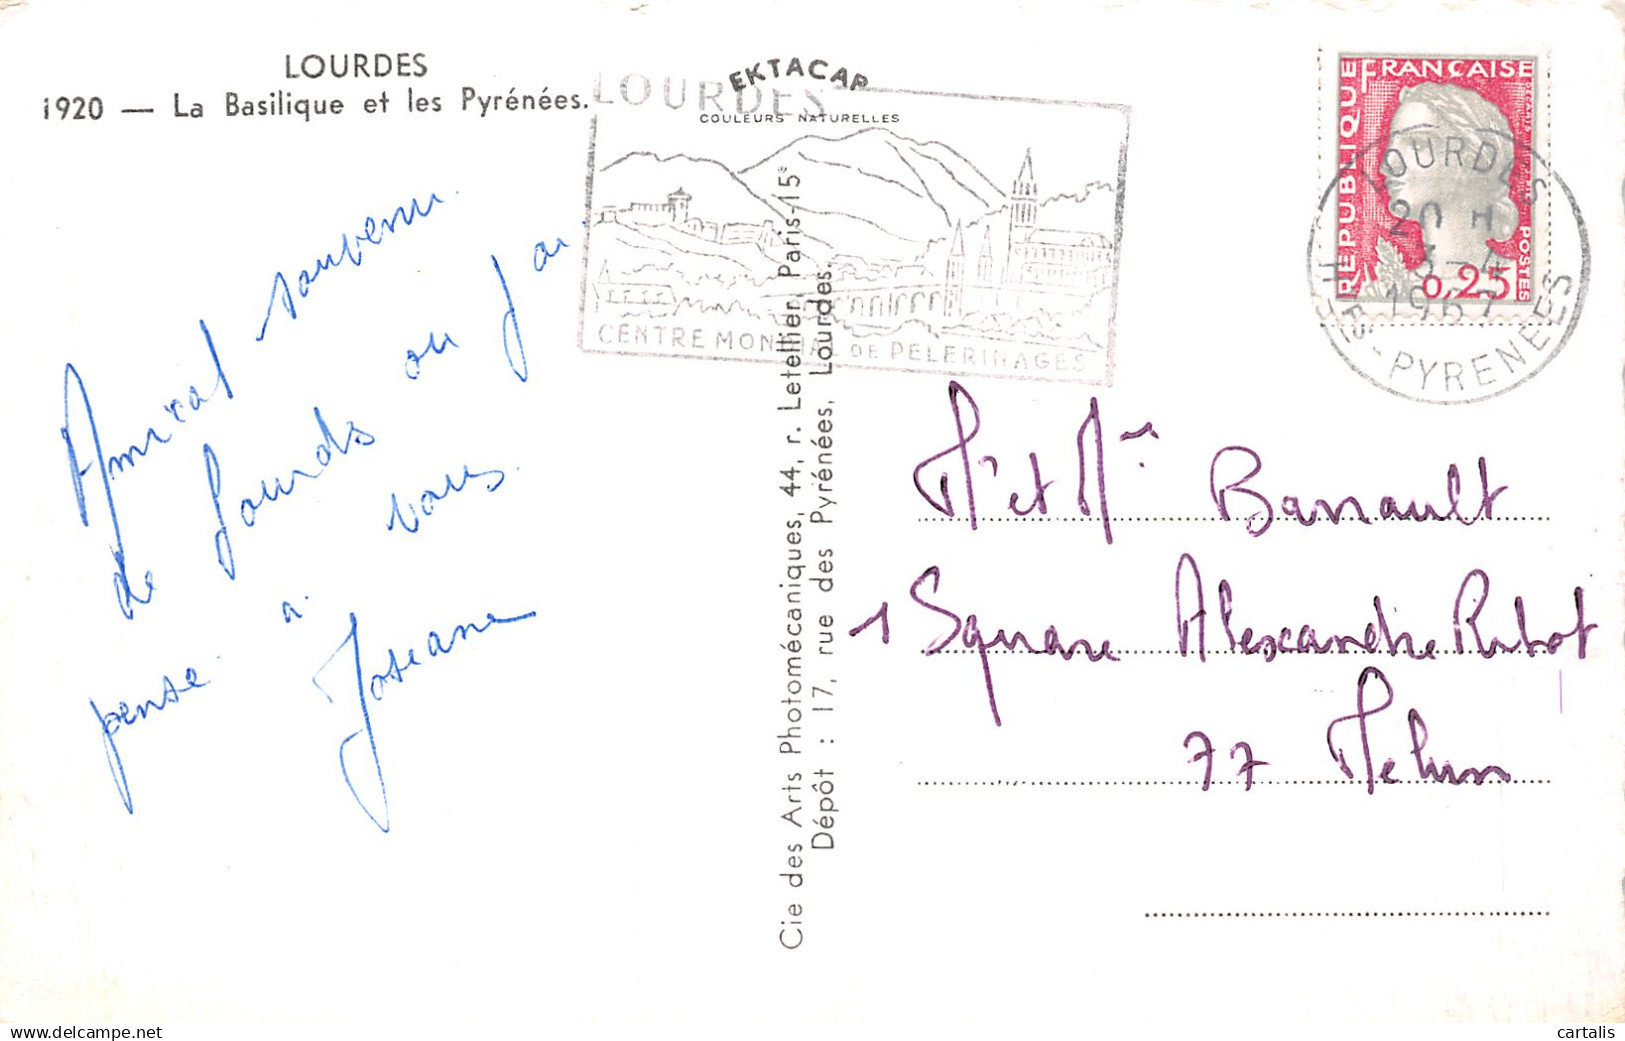 LOURDES
1920 — La Basilique et les Pyrénées.
EKTACAP
COULEURS NATURELLES
LOURDES
CENTRE MONDIAL DE PELERINAGES
REPUBLIQUE FRANÇAISE
POSTES
0,25
LOURDES
20 H
1967
HTES-PYRENEES
Amical souvenir
de Lourds ou j'ai
pensé à vous.
Josiane
Cie des Arts Photomécaniques, 44, r. Letellier Paris-15e
Dépôt : 17, rue des Pyrénées, Lourdes.
Mr et Me Barrault
1 Square Alexandre Ribot
77 Melun
cartalis